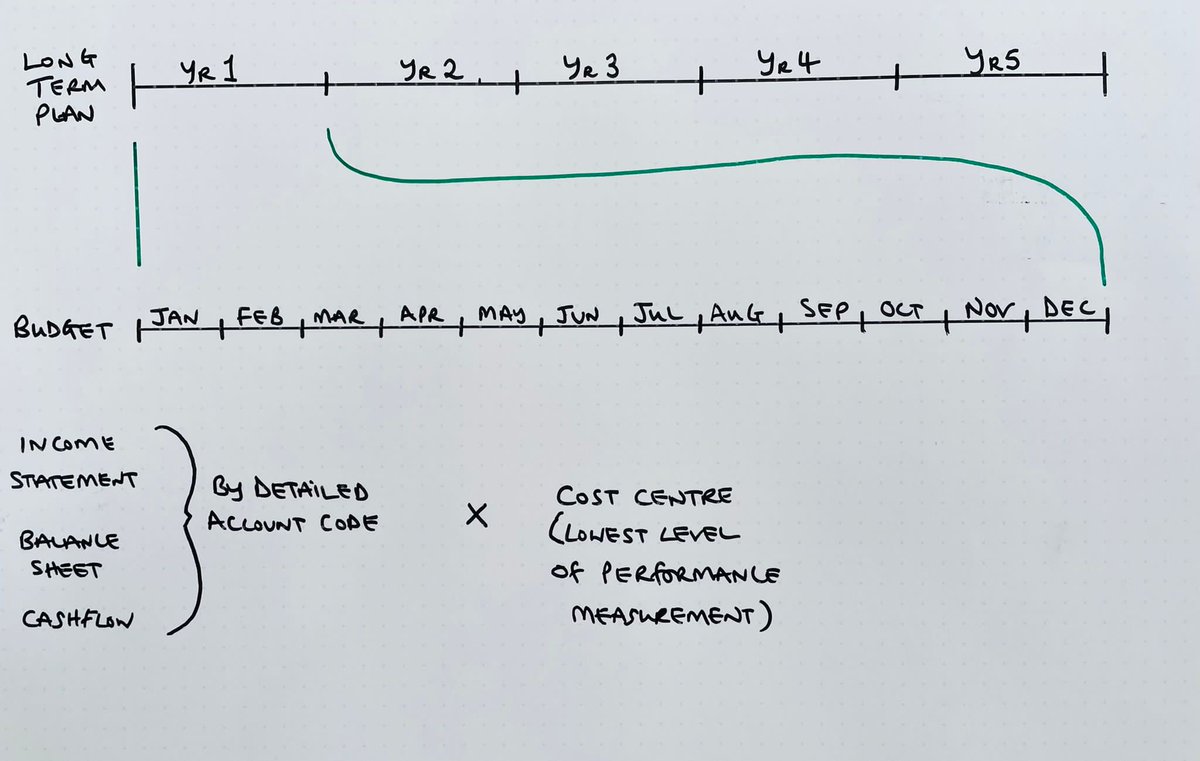 LONG
TERM
PLAN
YR 1 YR 2 YR 3 YR 4 YR 5
BUDGET JAN FEB MAR APR MAY JUN JUL AUG SEP OCT NOV DEC
INCOME
STATEMENT
BALANCE
SHEET
CASHFLOW
BY DETAILED
ACCOUNT CODE
X
COST CENTRE
(LOWEST LEVEL
OF PERFORMANCE
MEASUREMENT)